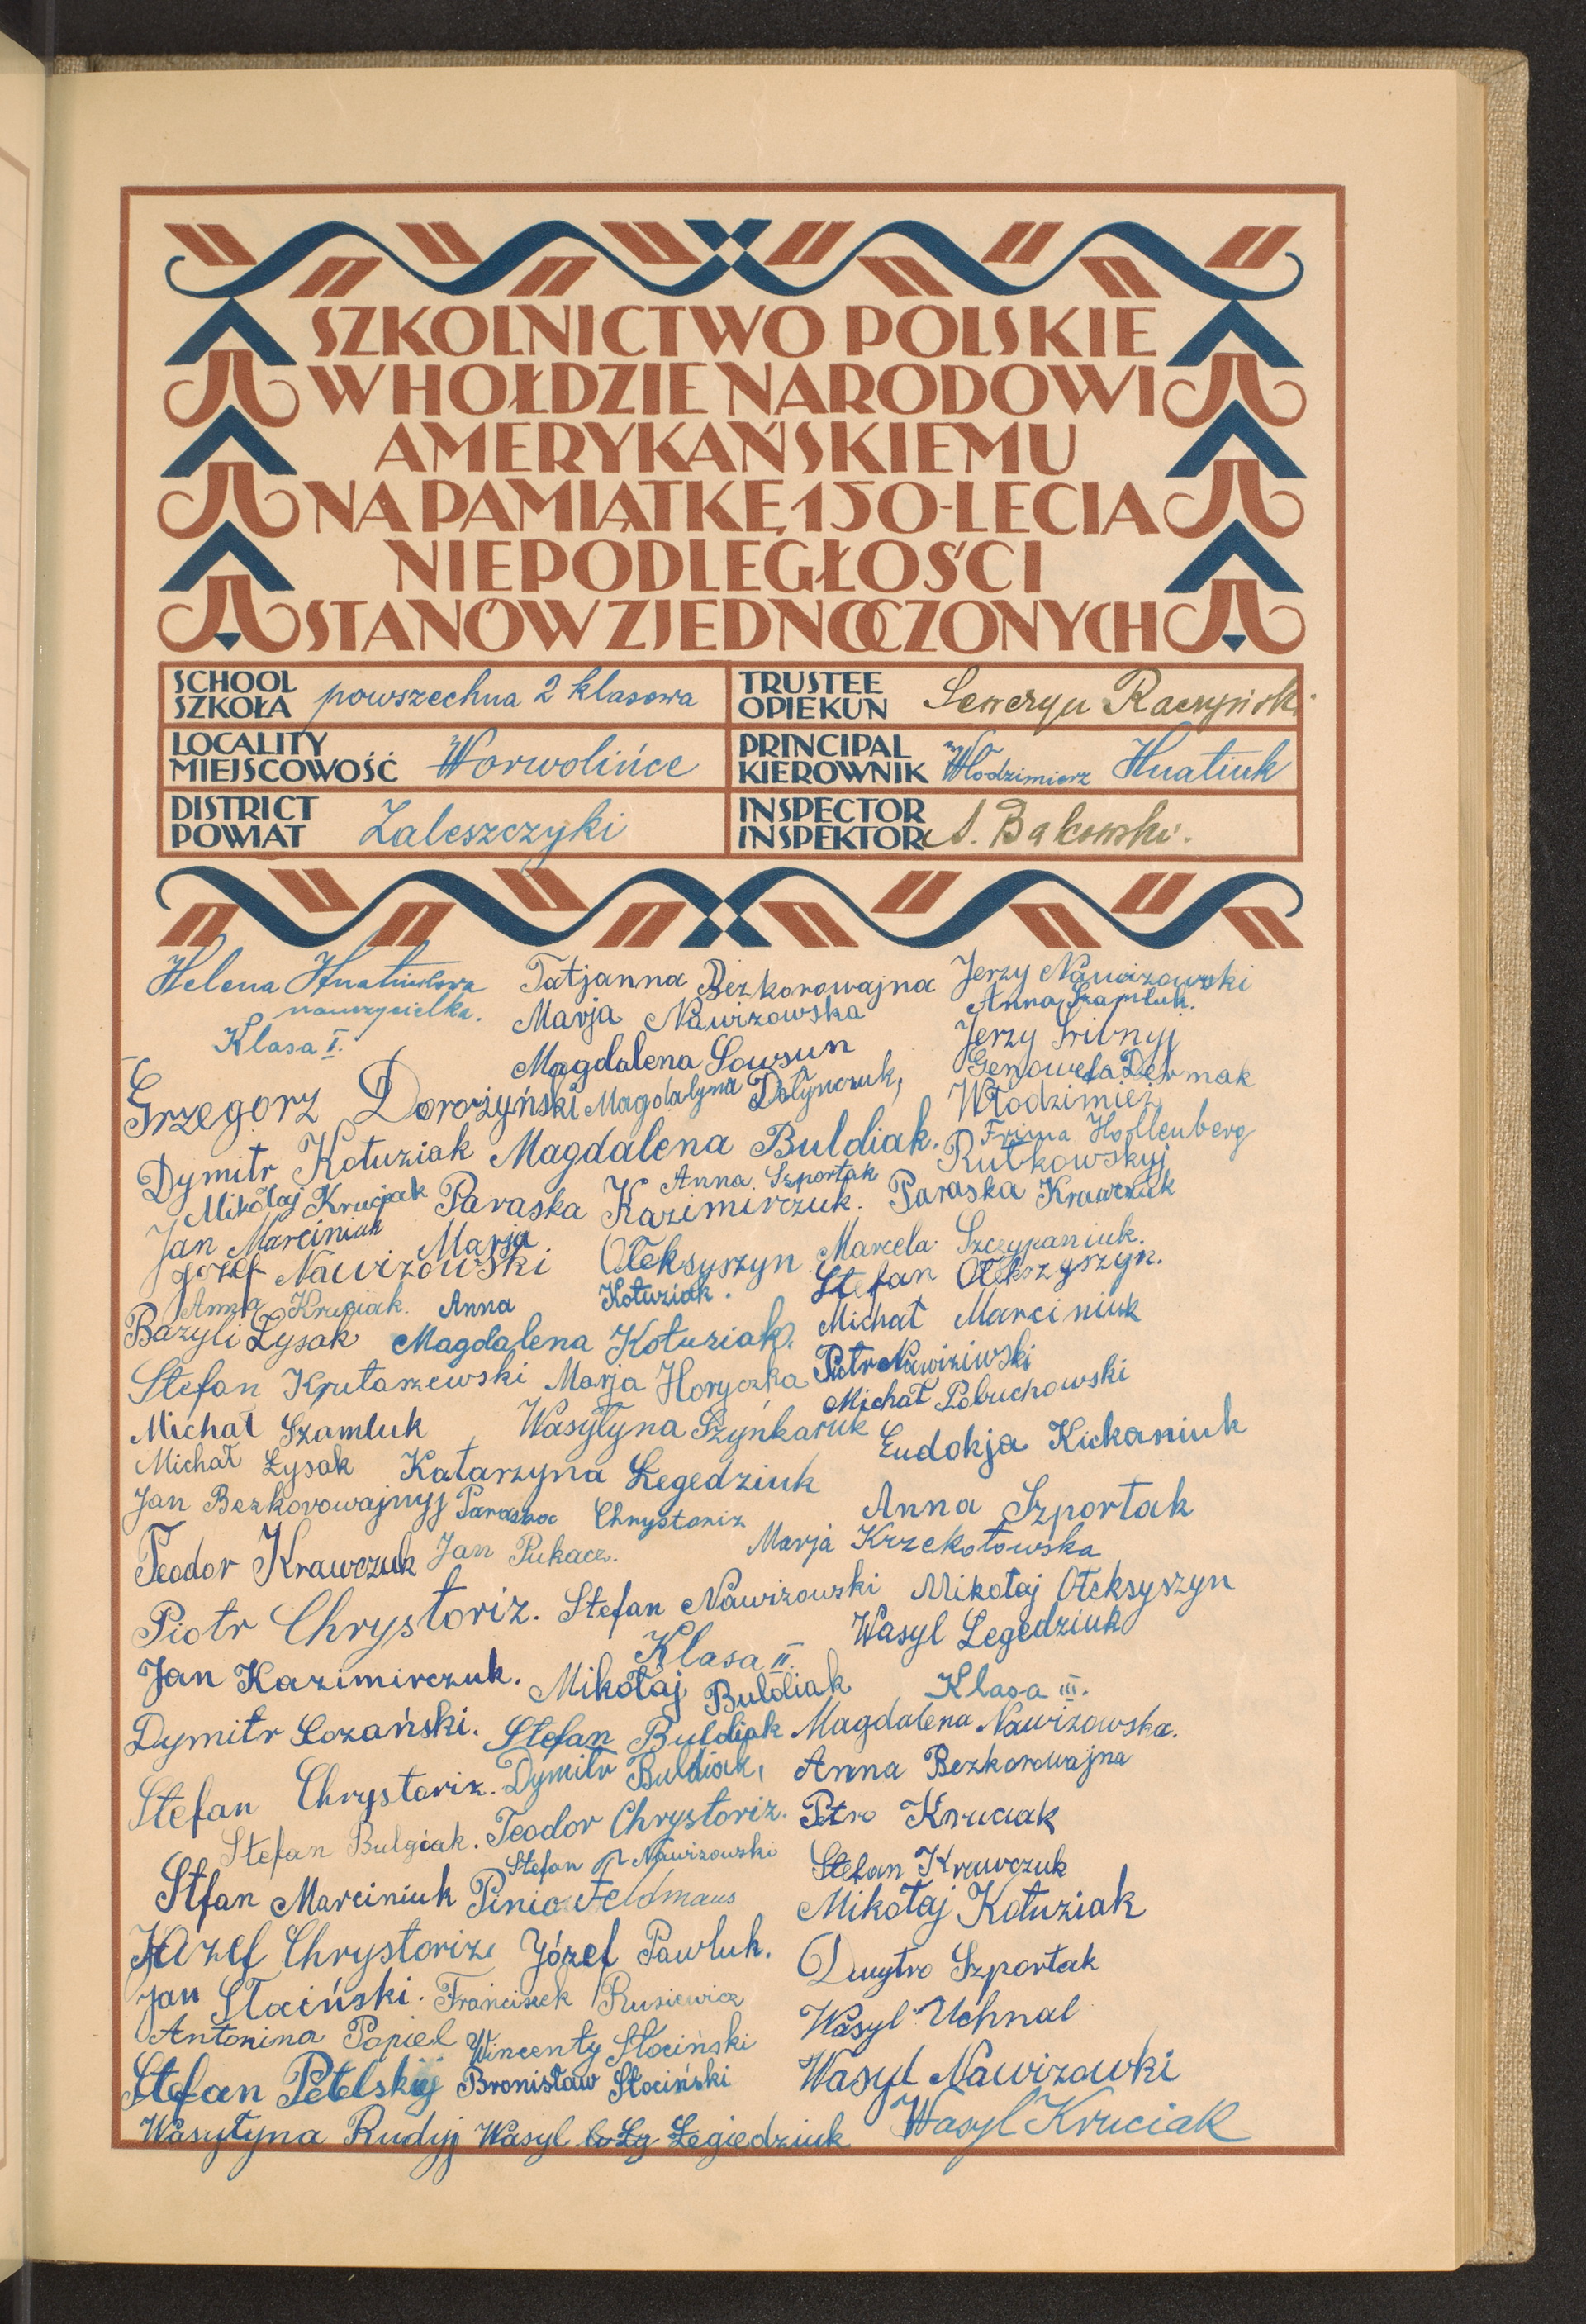 SZKOLNICTWO POLSKIE
W HOŁDZIE NARODOWI
AMERYKAŃSKIEMU
NA PAMIĄTKĘ 150-LECIA
NIEPODLEGŁOŚCI
STANÓW ZJEDNOCZONYCH
SCHOOL
SZKOŁA powszechna 2 klasowa
TRUSTEE
OPIEKUN Seweryn Raczyński
LOCALITY
MIEJSCOWOŚĆ Worwolińce
PRINCIPAL
KIEROWNIK Włodzimierz Hnatiuk
DISTRICT
POWIAT Zaleszczyki
INSPECTOR
INSPEKTOR A. Bakowski.
Helena Hnatiukowa
nauczycielka.
Klasa I.
Grzegorz Dorożyński
Dymitr Kotuziak
Mikołaj Kruciak
Jan Marciniuk
Józef Nawizowski
Anna Kruciak.
Bazyli Łysak
Stefan Krutaszewski
Michał Szamluk
Michał Łysak
Jan Bezkorowajnyj
Teodor Krawczuk
Piotr Chrystoriz.
Jan Kazimirczuk.
Dymitr Łozański.
Stefan Chrystoriz.
Stefan Bulgiak.
Stfan Marciniuk
Józef Chrystoriz
Jan Słociński.
Antonina Popiel
Stefan Petelskij
Wasyłyna Rudyj
Tatjanna Bezkorowajna
Marja Nawizowska
Magdalena Sowsun
Magdalyna Dołynczuk,
Magdalena Buldiak.
Anna Szportak
Paraska Kazimirczuk.
Marja Ołeksyszyn
Anna Kotuziak.
Magdalena Kotuziak.
Marja Horyczka
Wasyłyna Szynkaruk
Katarzyna Łegedziuk
Paraska Chrystoriz
Jan Pukacz.
Stefan Nawizowski
Klasa II.
Mikołaj Buldiak
Stefan Buldiak
Dymitr Buldiak,
Teodor Chrystoriz.
Stefan Nawizowski
Pinio Feldmaus
Józef Pawluk.
Franciszek Rusiewicz
Wincenty Słociński
Bronisław Słociński
Wasyl Łegiedziuk
Jerzy Nawizowski
Anna Szamluk.
Jerzy Sribnyj
Genowefa Dermak
Włodzimież
Frima Hollenberg
Rutkowskyj
Paraska Krawczuk
Marcela Szczypaniuk.
Stefan Ołekszyszyn.
Michał Marciniuk
Piotr Nawiziwski
Michał Pobuchowski
Eudokja Kickaniuk
Anna Szportak
Marja Krzekotowska
Mikołaj Ołeksyszyn
Wasyl Łegedziuk
Klasa III.
Magdalena Nawizowska.
Anna Bezkorowajna
Petro Kruciak
Stefan Krawczuk
Mikołaj Kotuziak
Dmytro Szportak
Wasyl Uchnal
Wasyl Nawizowki
Wasyl Kruciak